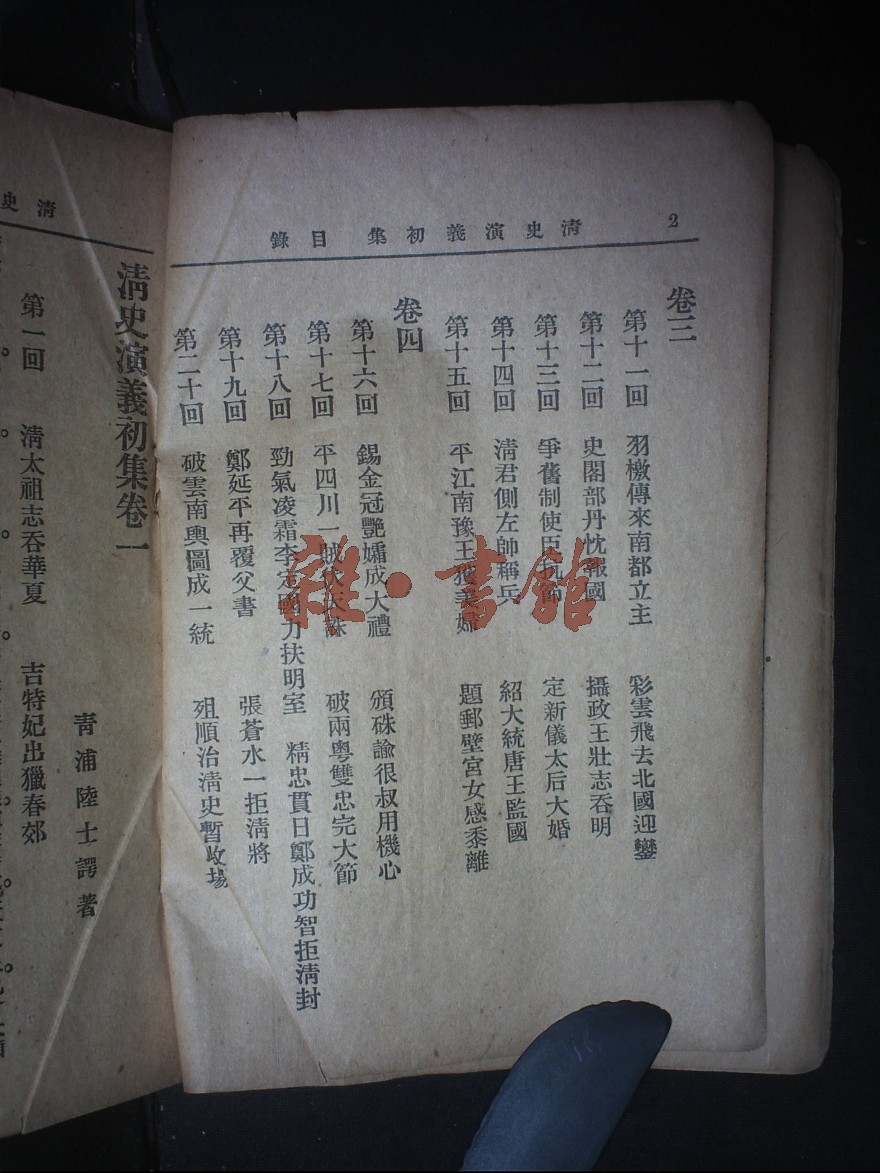 2
清史演義初集 目錄
卷三
第十一回 羽檄傳來南都立主 彩雲飛去北國迎鑾
第十二回 史閣部丹忱報國 攝政王壯志吞明
第十三回 爭舊制使臣抗節 定新儀太后大婚
第十四回 清君側左帥稱兵 紹大統唐王監國
第十五回 平江南豫王獲美婦 題郵壁宮女感黍離
卷四
第十六回 錫金冠艷孀成大禮 頒硃諭很叔用機心
第十七回 平四川一賊伏天誅 破兩粵雙忠完大節
第十八回 勁氣凌霜李定國力扶明室 精忠貫日鄭成功智拒清封
第十九回 鄭延平再覆父書 張蒼水一拒清將
第二十回 破雲南輿圖成一統 殂順治清史暫收場
清史
清史演義初集卷一
青浦陸士諤著
第一回 清太祖志吞華夏 吉特妃出獵春郊
雜·書館